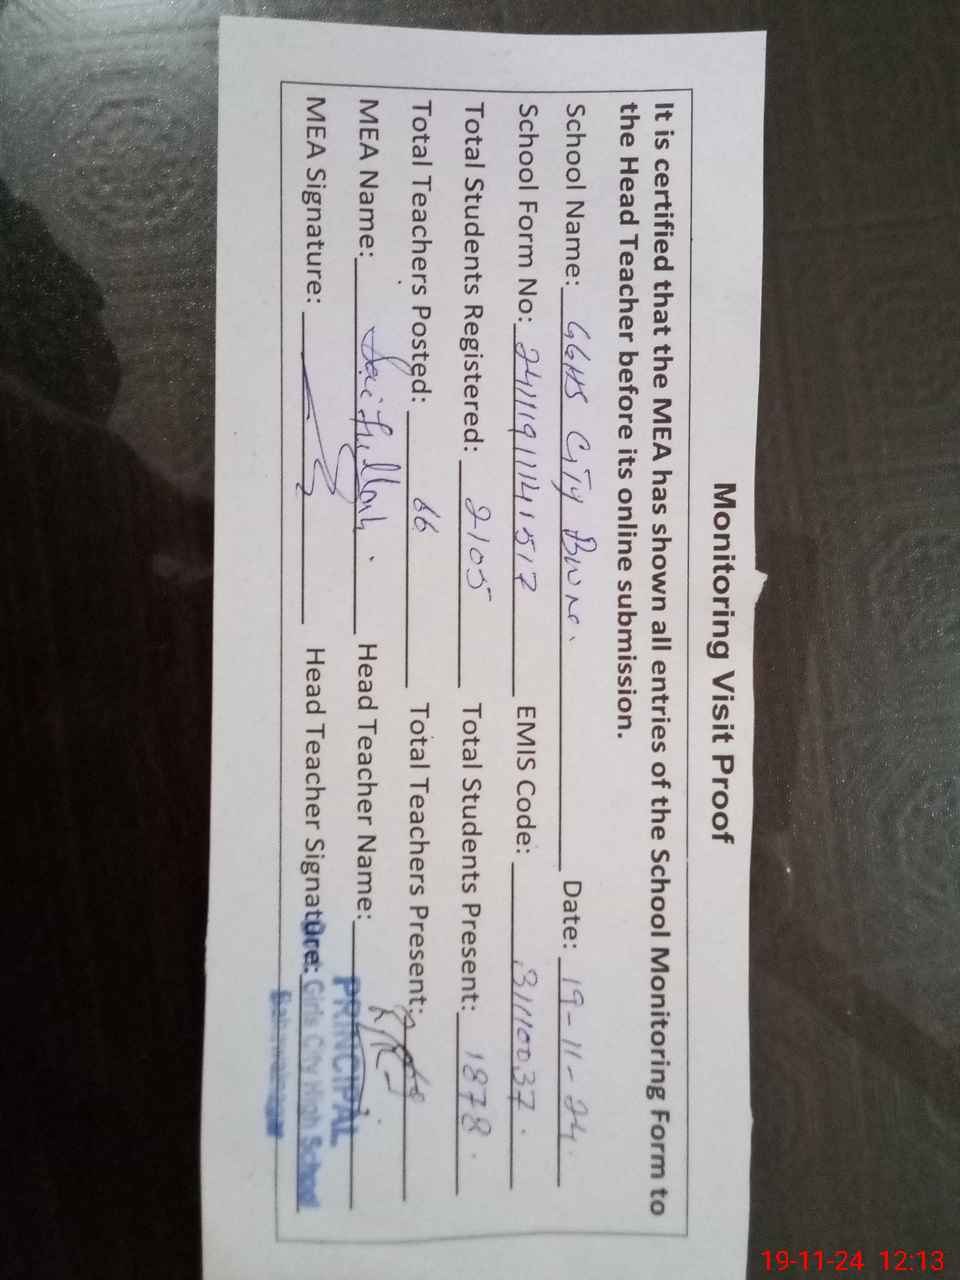 Monitoring Visit Proof
It is certified that the MEA has shown all entries of the School Monitoring Form to
the Head Teacher before its online submission.
School Name: GGHS City BWN. Date: 19-11-24.
School Form No: EMIS Code: 31110037.
Total Students Registered: 2105 Total Students Present: 1878.
Total Teachers Posted: 66 Total Teachers Present:
MEA Name: Saifullah. Head Teacher Name:
MEA Signature: Head Teacher Signature:
PRINCIPAL
Girls City High School
Bahawalnagar
19-11-24 12:13